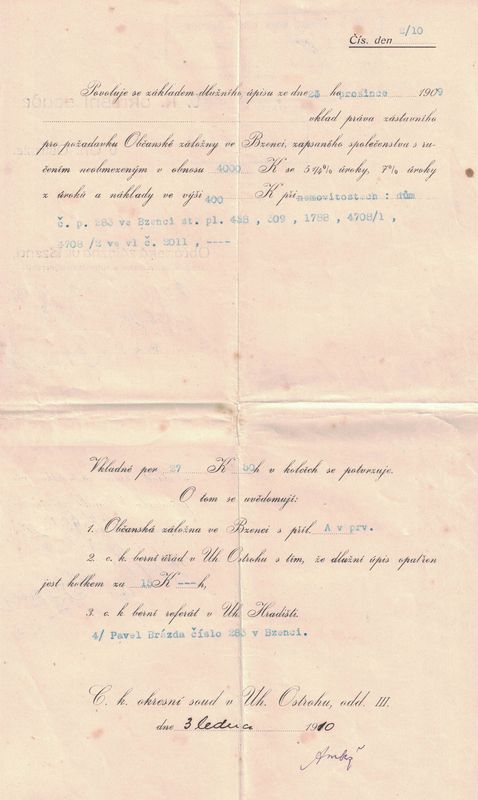 Čís. den 2/10
Povoluje se základem dlužního úpisu ze dne 23 ho prosince 1909
vklad práva zástavního
pro požadavku Občanské záložny ve Bzenci, zapsaného společenstva s ru-
čením neobmezeným v obnosu 4000 K se 5 1/4% úroky, 7% úroky
z úroků a náklady ve výši 400 K při nemovitostech : dům
č. p. 283 ve Bzenci st. pl. 458 , 309 , 1788 , 4708/1 ,
4708 /2 ve vl č. 2011 , ----
Vkladné per 27 K 50 h v kolcích se potvrzuje.
O tom se uvědomují:
1. Občanská záložna ve Bzenci s příl. A v prv.
2. c. k. berní úřad v Uh. Ostrohu s tím, že dlužní úpis opatřen
jest kolkem za 15 K --- h,
3. c. k. berní referát v Uh. Hradišti.
4/ Pavel Brázda číslo 283 v Bzenci.
C. k. okresní soud v Uh. Ostrohu, odd. III.
dne 3 ledna 1910